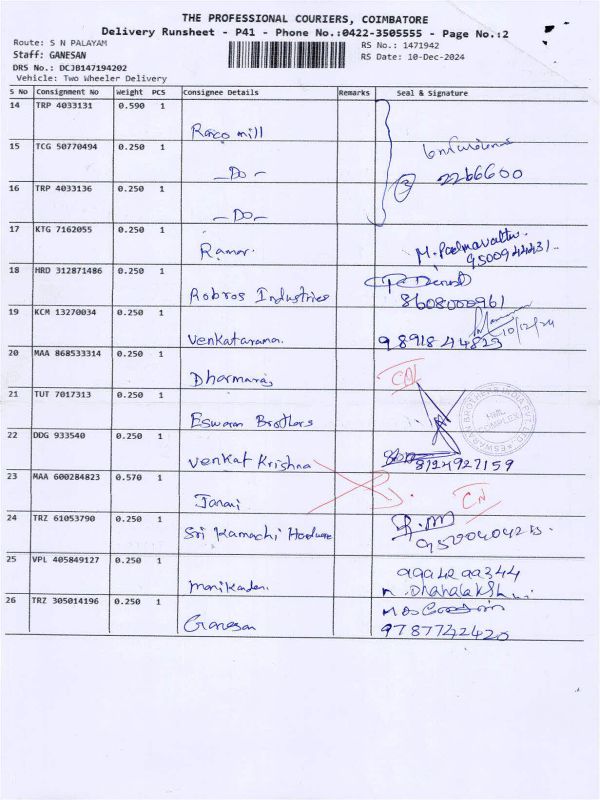 THE PROFESSIONAL COURIERS, COIMBATORE
Delivery Runsheet - P41 - Phone No.:0422-3505555 - Page No.:2
Route: S N PALAYAM
RS No.: 1471942
Staff: GANESAN
RS Date: 10-Dec-2024
DRS No.: DCJB147194202
Vehicle: Two Wheeler Delivery
S No Consignment No Weight PCS Consignee Details Remarks Seal & Signature
14 TRP 4033131 0.590 1
Roico mill
15 TCG 50770494 0.250 1
2266600
Do
3
16 TRP 4033136 0.250 1
Do
17 KTG 7162055 0.250 1
M. Padmavathi
Ramar. 9500944431
18 HRD 312871486 0.250 1
Robros Industries 8608000961
19 KCM 13270034 0.250 1
10/12/24
Venkatarama. 9891844823
20 MAA 868533314 0.250 1
Dharmaraj
21 TUT 7017313 0.250 1
Eswaran Brothers
22 DDG 933540 0.250 1
Venkat Krishna 8124927159
23 MAA 600284823 0.570 1
Janani
24 TRZ 61053790 0.250 1
Sri Kamachi Hardware
25 VPL 405849127 0.250 1
9994299344
Manikanden. n. Dhanalakshmi
26 TRZ 305014196 0.250 1
Ganesan 9787742420